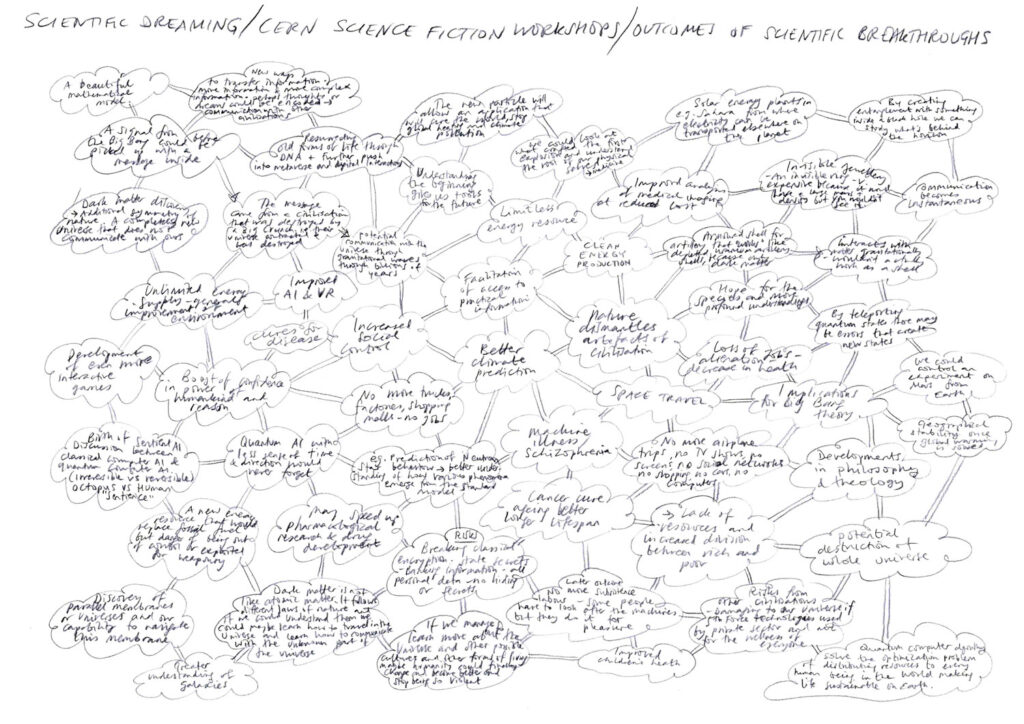 SCIENTIFIC DREAMING/CERN SCIENCE FICTION WORKSHOPS/OUTCOMES OF SCIENTIFIC BREAKTHROUGHS
A beautiful
mathematical
model
New ways
to transfer information
more information & more complex
information
communication with other
civilisations
The new particle will
allow an application that
Solar energy plants in
e.g. Sahara from where
electricity can be
transported elsewhere on
the planet
By creating
entanglement with something
inside a black hole we can
study what's behind
the horizon
A signal from
the Big Bang could be
picked up with a
message inside
Resurrecting
old forms of life through
DNA +
into metaverse and digital
Understanding
the beginning
gives us tools
for the future
Improved analysis
of medical imaging
at reduced cost
Invisible jewellery
- An invisible ring is
expensive because it
Communication
becomes
instantaneous
Dark matter
→ additional symmetry of
nature. A completely new
universe that does not
communicate with ours
The message
came from a civilisation
that was destroyed by
a Big Crunch
universe contracted &
was destroyed
potential
communication with the
universe through
gravitational waves
through billions of
years
Limitless
energy resource
CLEAN
ENERGY
PRODUCTION
artillery that works like
depleted uranium artillery
shell, because
dark matter
Interacts with
matter gravitationally
work as a shell
Unlimited energy
supply - general
improvement of
environment
Improved
AI & VR
Facilitation
of access to
practical
information
Hope for the
species and more
profound understandings
cures for
disease
Increased
social
control
Better
climate
prediction
Nature
dismantles
artefacts of
civilisation
By teleporting
quantum states there may
be errors that create
new states
Development
of even more
interactive
games
Boost of confidence
in power
humankind and
reason
No more trades,
factories, shopping
malls - no jobs
SPACE TRAVEL
Loss of jobs -
alienation -
decrease in health
Implications
for Big Bang
theory
We could
control an
experiment on
Mars from
Earth
Birth of Sentient AI
Discussion between
classical computer AI &
quantum computer AI
(irreversible vs reversible)
octopus vs human
"sentience"
Quantum AI with
less sense of time
& direction would
never forget
e.g. Prediction of Neutron
star behaviour → better under-
standing of how various phenomena
emerge from the standard
model
Machine
illness/
Schizophrenia
No more airplane
trips, no TV shows, no
screens, no social networks
no shopping, no cars, no
computers
Developments
in philosophy
& theology
Geographical
stability once
global warming
is solved
A new energy
resource that would
replace fossil fuel
but danger of being out
of control or exploited
for weaponry
May speed up
pharmacological
research & drug
development
Cancer cure
ageing better
longer lifespan
→ Lack of
resources and
increased division
between rich and
poor
potential
destruction of
whole universe
RISKS
Breaking classical
encryption - state secrets
- Banking information - all
personal data - no hiding
or secrets
Discovery of
parallel membranes
or universes and our
capability to navigate
this membrane
Dark matter is not
like atomic matter. It follows
different laws of nature and
if we could understand them we
could maybe learn how to travel in the
universe and learn how to communicate
with the unknown part of
the universe
If we manage to
learn more about the
universe and other possible
cultures and other forms of living
maybe humanity could finally
change and become better and
stop being so violent
Later outcome
No more subsistence
labour - some people
have to look after the machines
but they do it for
pleasure
Risks from
other civilisations
- Damaging to our universe if
technologies used
by private sector and not
for the richness of
everyone
Greater
understanding of
galaxies
Improved
children's health
Quantum computer
solve the optimization problem
of distributing resources to every
human being in the world making
life sustainable on Earth.